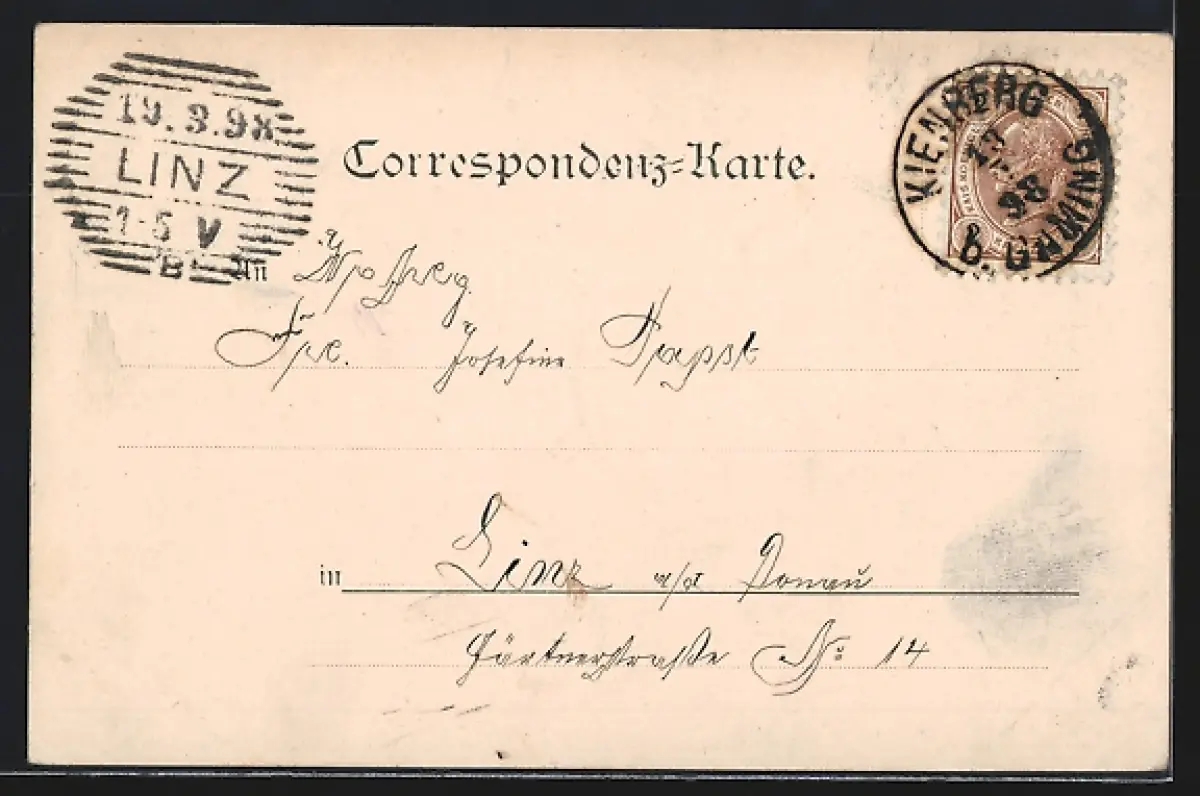 19.3.98
LINZ
1-5 V
B
KIENBERG
98
b. GAMING
Correspondenz=Karte.
An
Josefine
in Linz a/d Donau
Gärtnerstraße No 14